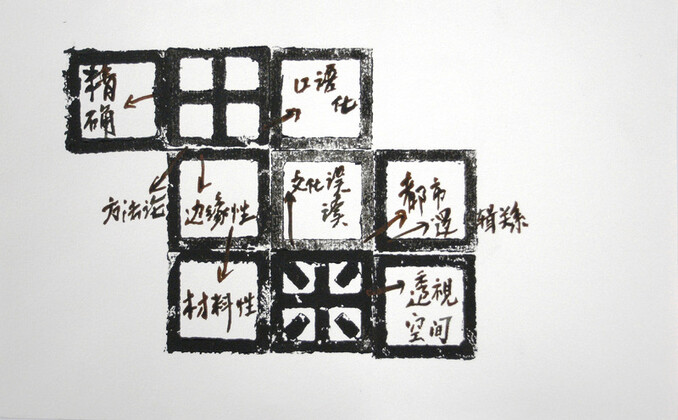 精
确
口语
化
方法论
边缘性
文化误
读
都市
材料性
透視
空间